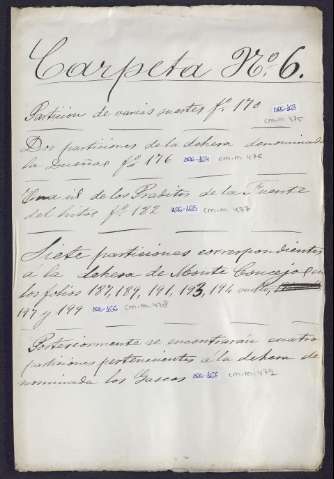 Carpeta Nº 6.
Particion de varias suertes fº 170
cm-m 475
Dos particiones de la dehesa denominada
la Dueñas fº 176 cm-m 476
Una id de los Praditos de la Fuente
del fº 182 cm-m 477
Siete particiones correspondientes
a la dehesa de Monte Concejo
los folios 187, 189, 191, 193, 194 vuelto,
197 y 199 cm-m 478
Posteriormente se encontrarán cuatro
particiones pertenecientes á la dehesa de
nominada los Gascos cm-m 479